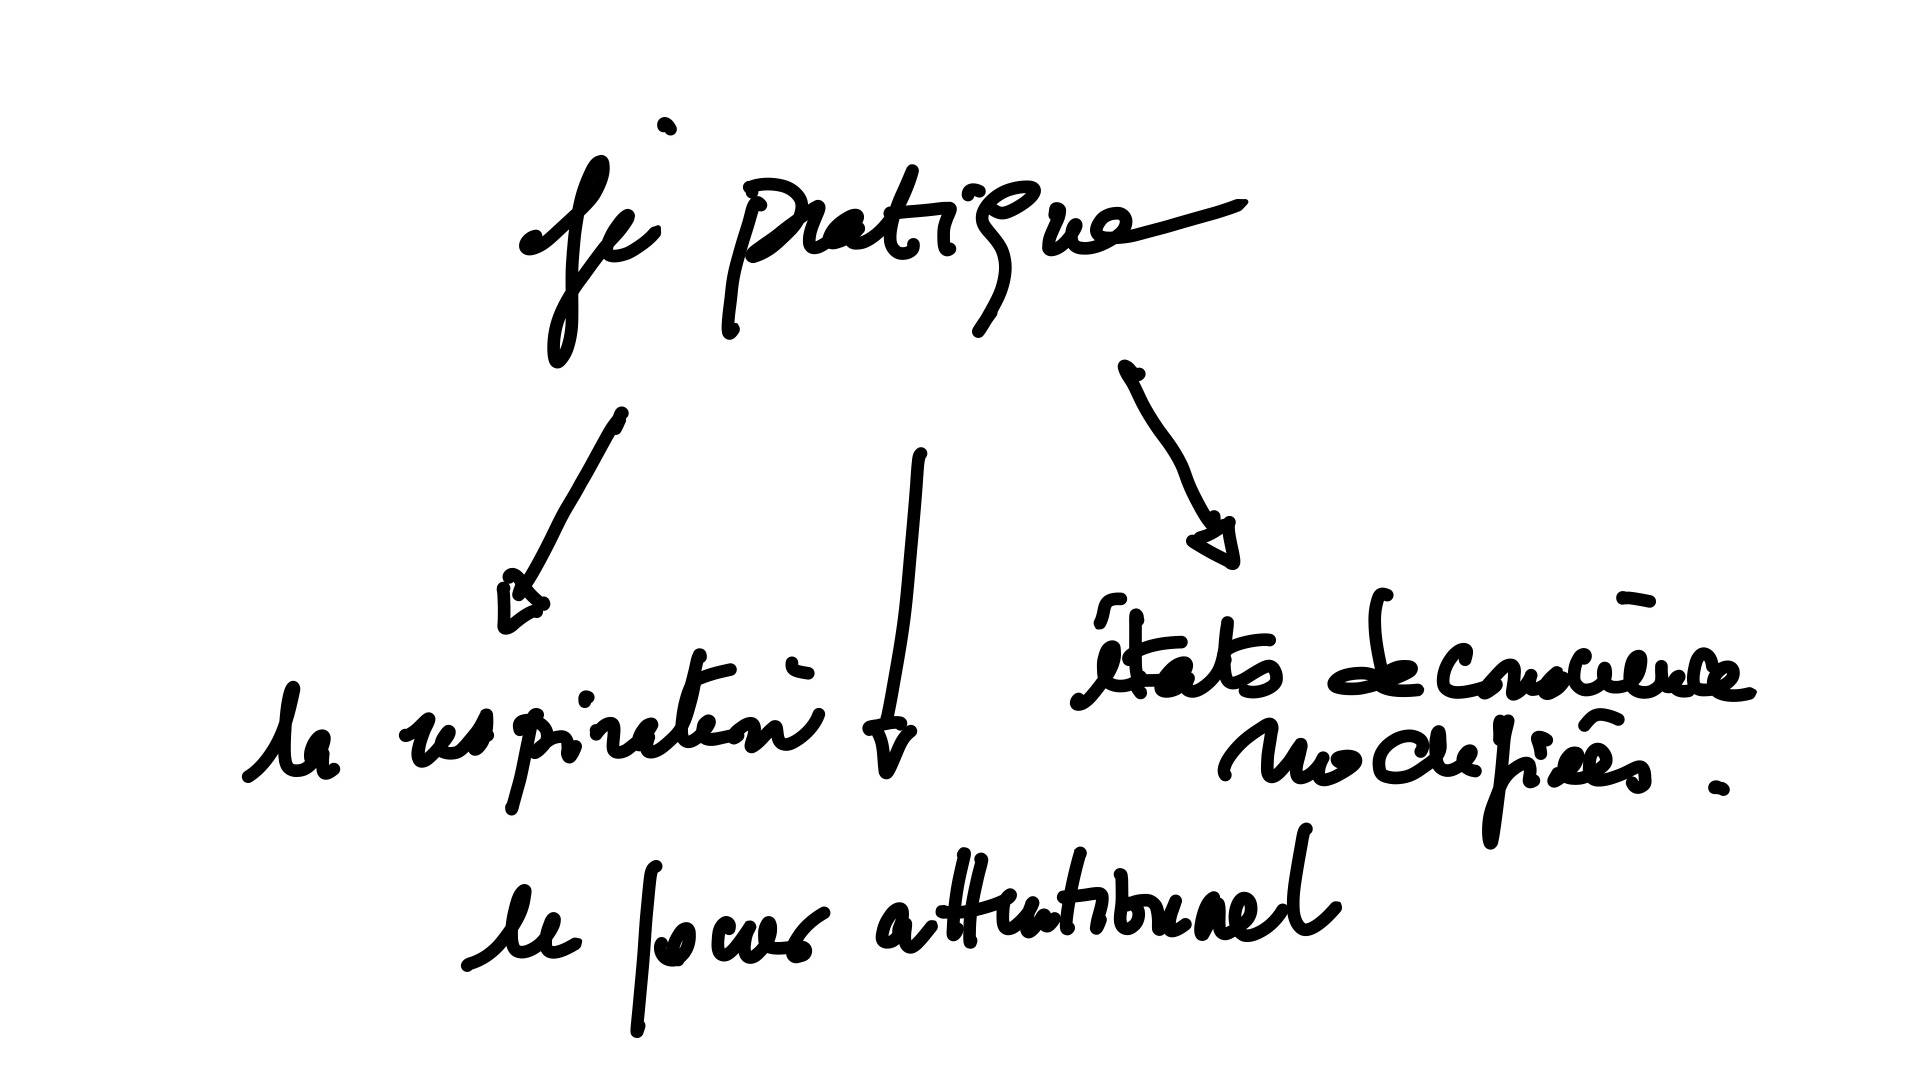 je pratique
la respiration
états de conscience
modifiées.
le focus attentionnel